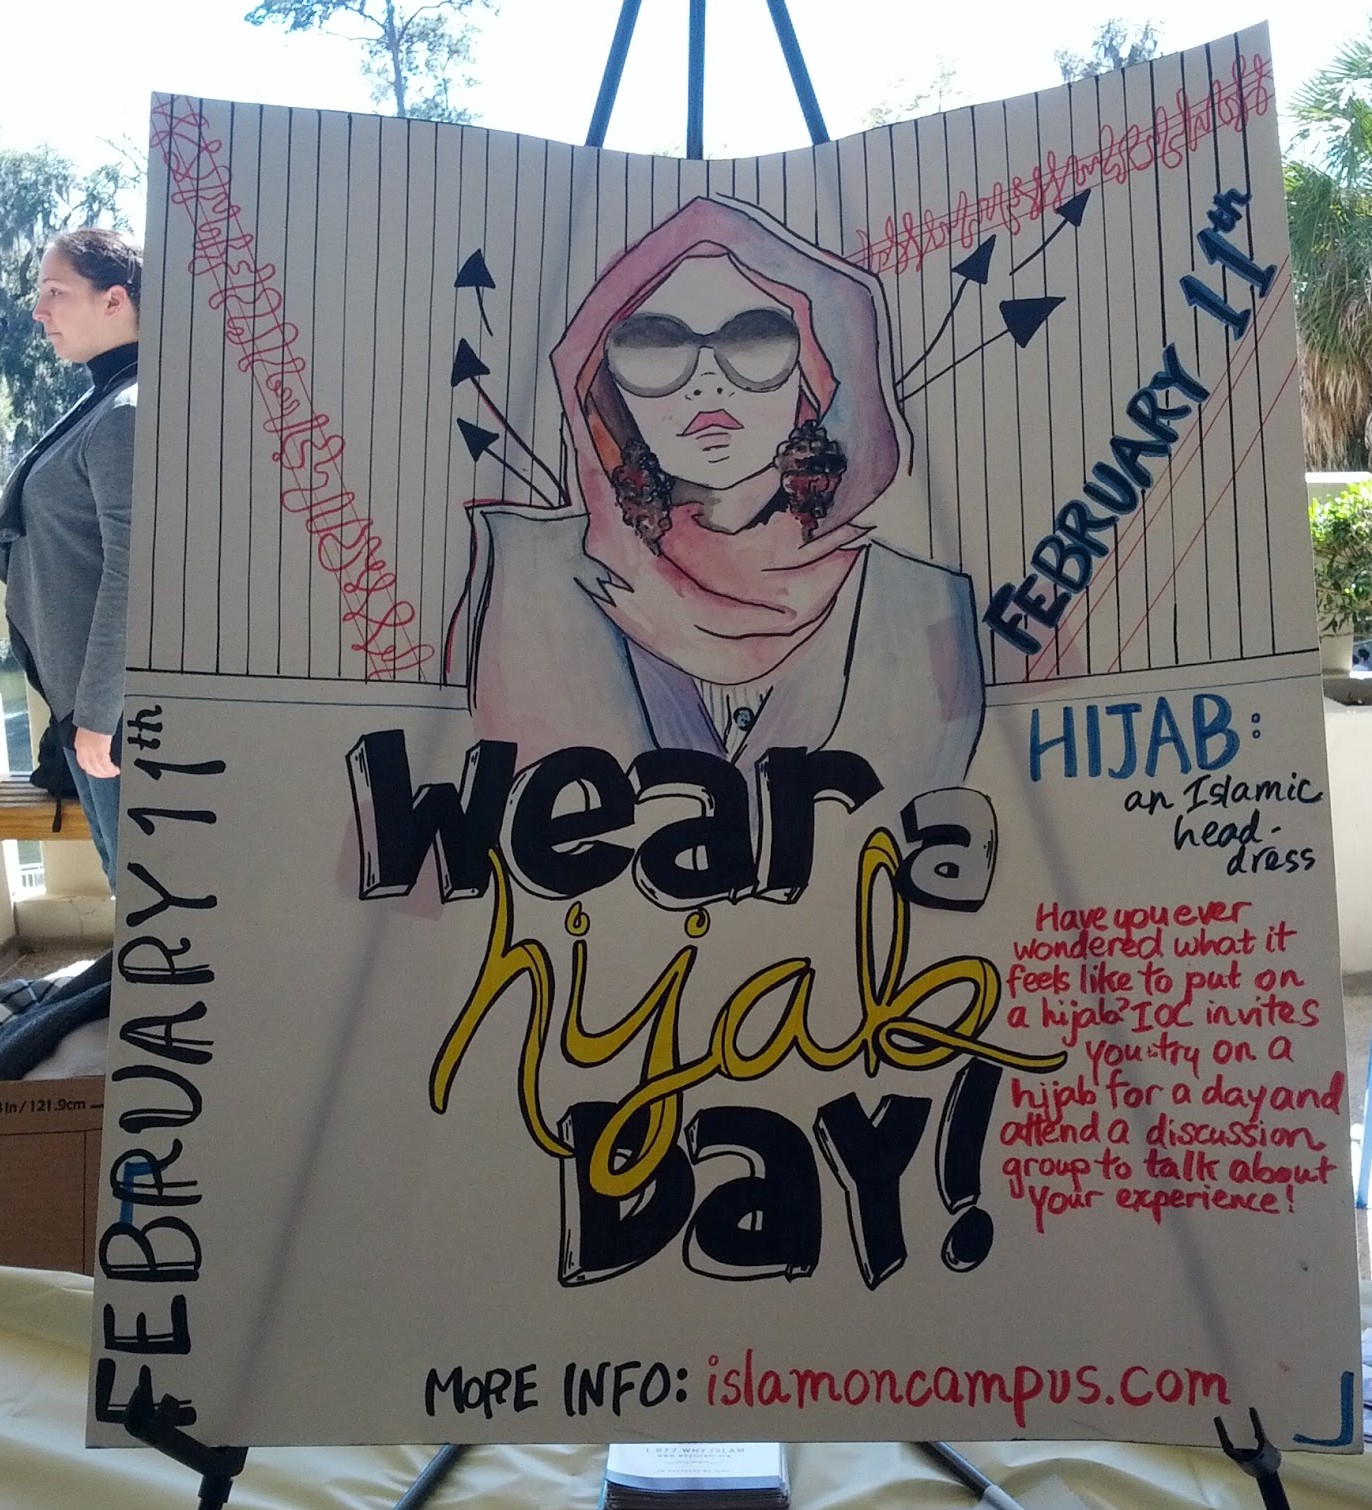 FEBRUARY 11th
FEBRUARY 11th
wear a
hijab
DAY!
HIJAB:
an Islamic
head-
dress
Have you ever
wondered what it
feels like to put on
a hijab? IOC invites
you try on a
hijab for a day and
attend a discussion
group to talk about
your experience!
MORE INFO: islamoncampus.com
in / 121.9cm
1.877.WHY.ISLAM